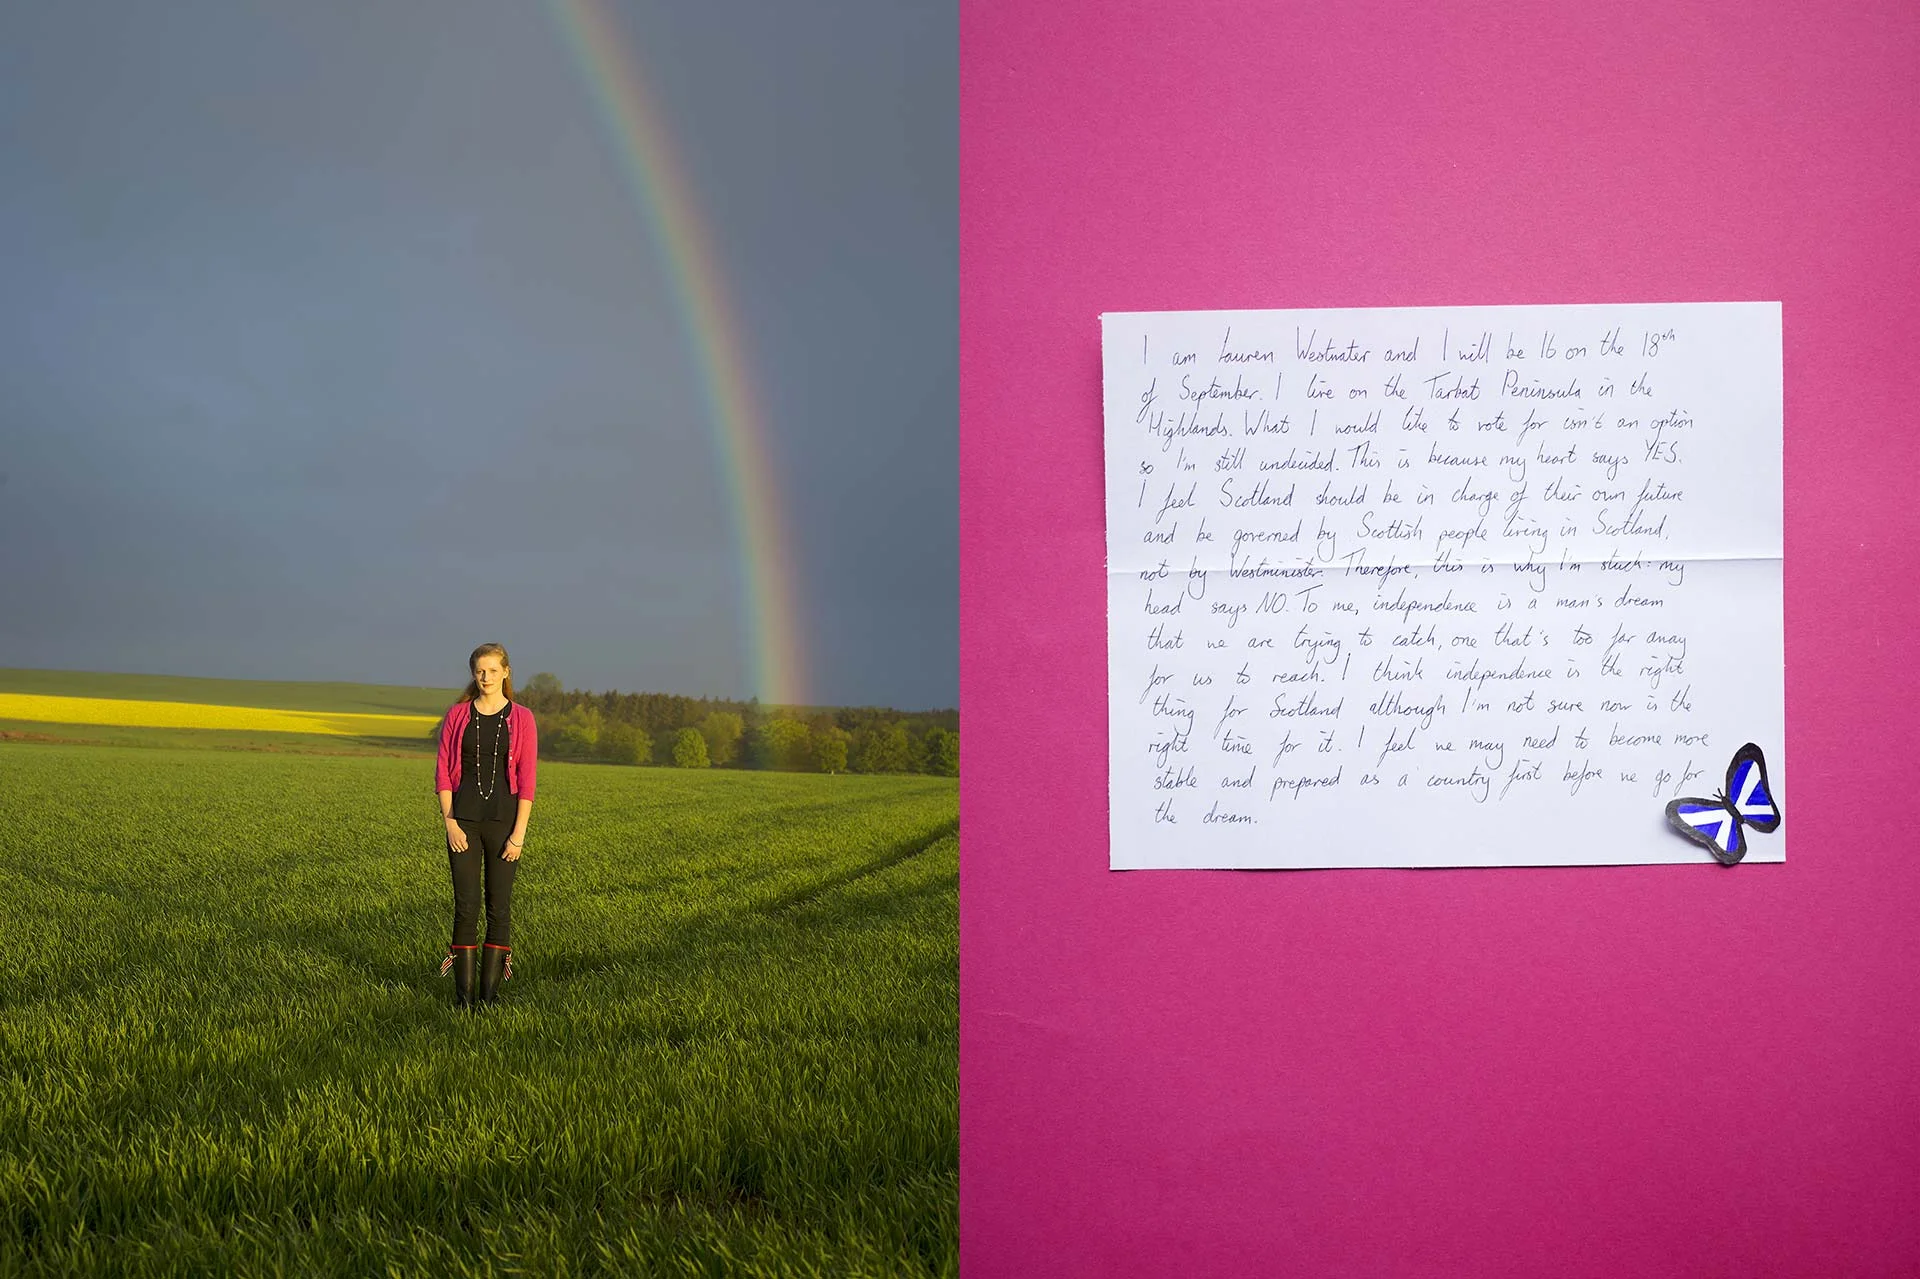 I am Lauren Westwater and I will be 16 on the 18th
of September. I live on the Tarbat Peninsula in the
Highlands. What I would like to vote for isn't an option
so I'm still undecided. This is because my heart says YES.
I feel Scotland should be in charge of their own future
and be governed by Scottish people living in Scotland,
not by Westminister. Therefore, this is why I'm stuck: my
head says NO. To me, independence is a man's dream
that we are trying to catch, one that's too far away
for us to reach. I think independence is the right
thing for Scotland although I'm not sure now is the
right time for it. I feel we may need to become more
stable and prepared as a country first before we go for
the dream.